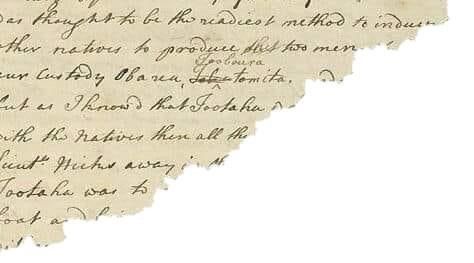 as thought to be the readiest method to induce
other natives to produce the two men
Tooboura
our Custody Obarea, tomita.
but as I know'd that Tootaha
with the Natives then all the
Lieut.t Hicks away in th
Tootaha was to
boat and